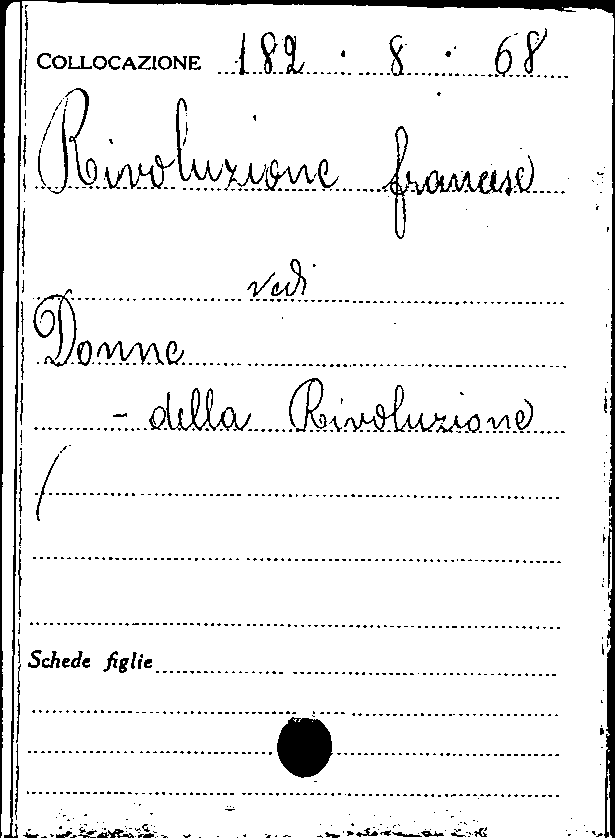 COLLOCAZIONE 182 · 8 · 68
Rivoluzione francese
vedi
Donne
- della Rivoluzione
Schede figlie